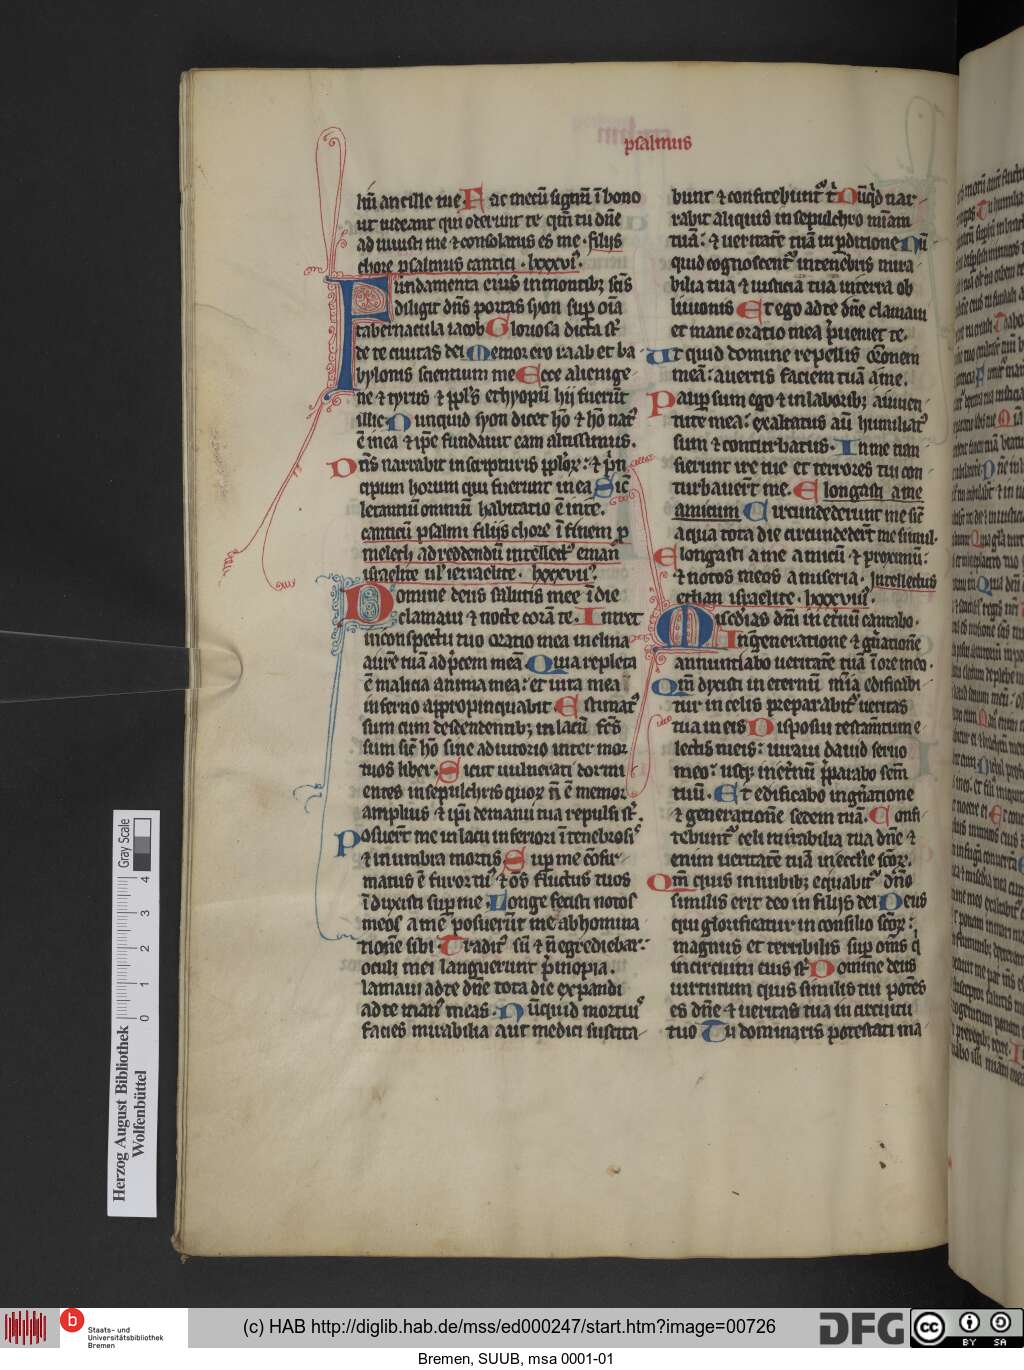 psalmus
liū ancille tue. Fac mecū signū ī bono
ut videant qui oderunt te qm̄ tu dn̄e
adiuuisti me ⁊ consolatus es me. filijs
chore psalmus cantici. lxxxvi.
Fundamenta eius in montib; scīs
diligit dn̄s portas syon sup oīa
tabernacula iacob Gloriosa dicta st̄
de te ciuitas dei Memor ero raab et ba
bylonis scientium me Ecce alienige
ne ⁊ tyrus ⁊ ppl̄s ethyopū hij fuerūt
illic Nunquid syon dicet hō ⁊ hō nat᷒
ē in ea ⁊ ip̄e fundauit eam altissimus.
Dn̄s narrabit in scripturis pplōꝝ: ⁊ p̄n
cipum horum qui fuerunt in ea Sic̄
letantiū omniū habitatio ē in te.
canticū psalmi filijs chore ī finem p
melech ad reddendū intellect᷒ eman
israelite ul̄ iezraelite. lxxxvii.
Domine deus salutis mee ī die
clamaui ⁊ nocte corā te. Intret
in conspectu tuo oratio mea inclina
aurē tuā ad p̄cem meā Quia repleta
ē malicia anima mea: et uita mea
inferno appropinquabit Estimat᷒
sum cum descendentib; in lacū fc̄s
sum sic̄ hō sine adiutorio inter mor
tuos liber. Sicut uulnerati dormi
entes in sepulchris quoꝝ n̄ ē memor
amplius ⁊ ip̄i de manu tua repulsi st̄.
Posuer̄t me in lacu inferiori ī tenebrosis
⁊ in umbra mortis Sup me cōfir
matus ē furor tu᷒ ⁊ om̄s fluctus tuos
īdixisti sup me. Longe fecisti notos
meos a me posuer̄t me abhomina
tionē sibi Tradit᷒ sū ⁊ n̄ egrediebar:
oculi mei languerunt p̄ inopia.
lamaui ad te dn̄e tota die expandi
ad te man᷒ meas. Nūquid mortui᷒
facies mirabilia aut medici suscita
bunt ⁊ confitebunt᷒ t̄ Nūqd nar
rabit aliquis in sepulchro mīam
tuā: ⁊ ueritatē tuā in pditione Nū
quid cognoscent᷒ in tenebris mira
bilia tua ⁊ iusticia tuā in terra ob
liuionis Et ego ad te dn̄e clamaui
et mane oratio mea p̄ueniet te.
Ut quid domine repellis or̄onem
meā: auertis faciem tuā a me.
Paup sum ego ⁊ in laborib; a iuuen
tute mea: exaltatus aū humiliat᷒
sum ⁊ conturbatus. In me tran
sierunt ire tue et terrores tui con
turbauer̄t me. Elongasti a me
amicum Circumdederunt me sic̄
aqua tota die circumdeder̄t me simul.
Elongasti a me amicū ⁊ proximū:
⁊ notos meos a miseria. Intellectus
ethan israelite. lxxxviii.
Misc̄dias dn̄i in et̄nū cantabo.
In gn̄eratione ⁊ gn̄ationē
annuntiabo ueritatē tuā ī ore meo.
Qm̄ dixisti in eternū mīa edificabi
tur in celis preparabit᷒ ueritas
tua in eis Disposui testam̄tum e
lectis meis: iuraui dauid seruo
meo: usq; in et̄nū p̄parabo sem̄
tuū. Et edificabo in gn̄atione
⁊ generationē sedem tuā. Confi
tebunt᷒ celi mirabilia tua dn̄e ⁊
enim ueritatē tuā in eccl̄ie scōꝝ.
Qm̄ quis in nubib; equabit᷒ dn̄o
similis erit deo in filijs dei Deus
qui glorificatur in consilio scōꝝ:
magnus et terribilis sup om̄s q̄
in circuitu eius st̄ Domine deus
uirtutum quis similis tui potēs
es dn̄e ⁊ ueritas tua in circuitu
tuo Tu dominaris potestati ma
Gray Scale
0 1 2 3 4
Herzog August Bibliothek
Wolfenbüttel
b
Staats- und
Universitätsbibliothek
Bremen
(c) HAB http://diglib.hab.de/mss/ed000247/start.htm?image=00726
DFG
cc
BY SA
Bremen, SUUB, msa 0001-01